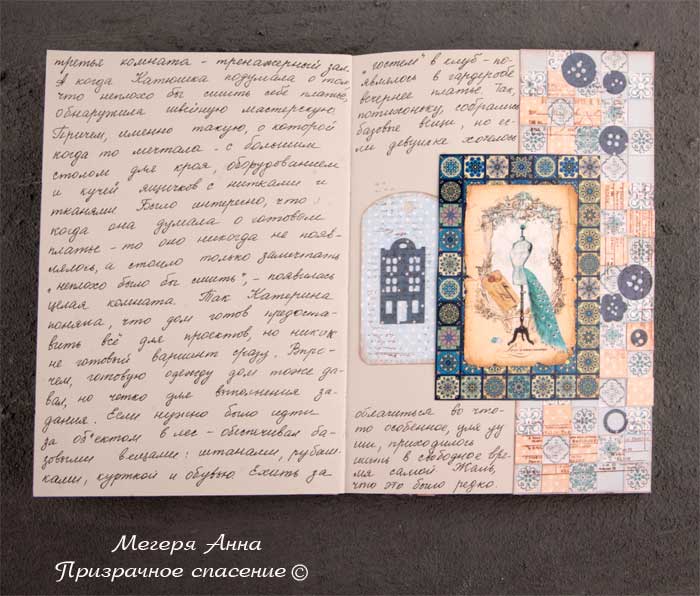 третья комната - тренажерный зал.
А когда Катюшка подумала о том,
что неплохо бы сшить себе платье,
обнаружила швейную мастерскую.
Причем, именно такую, о которой
когда то мечтала - с большим
столом для кроя, оборудованием
и кучей ящичков с нитками и
тканями. Было интересно, что
когда она думала о готовом
платье - то оно никогда не появ-
лялось, а стоило только замечтать
"неплохо было бы сшить", - появилась
целая комната. Так Катерина
поняла, что дом готов предоста-
вить всё для проектов, но никак
не готовый вариант сразу. Впро-
чем, готовую одежду дом тоже да-
вал, но четко для выполнения за-
дания. Если нужно было идти
за объектом в лес - обеспечивал ба-
зовыми вещами: штанами, рубаш-
ками, курткой и обувью. Ехать за
"гостем" в клуб - по-
являлось в гардеробе
вечернее платье. Так,
потихоньку, собрались
базовые вещи, но ес-
ли девушка хотелось
облачиться во что-
то особенное, для ду
ши, приходилось
шить в свободное вре-
мя самой. Жаль,
что это было редко.
Мегеря Анна
Призрачное спасение ©